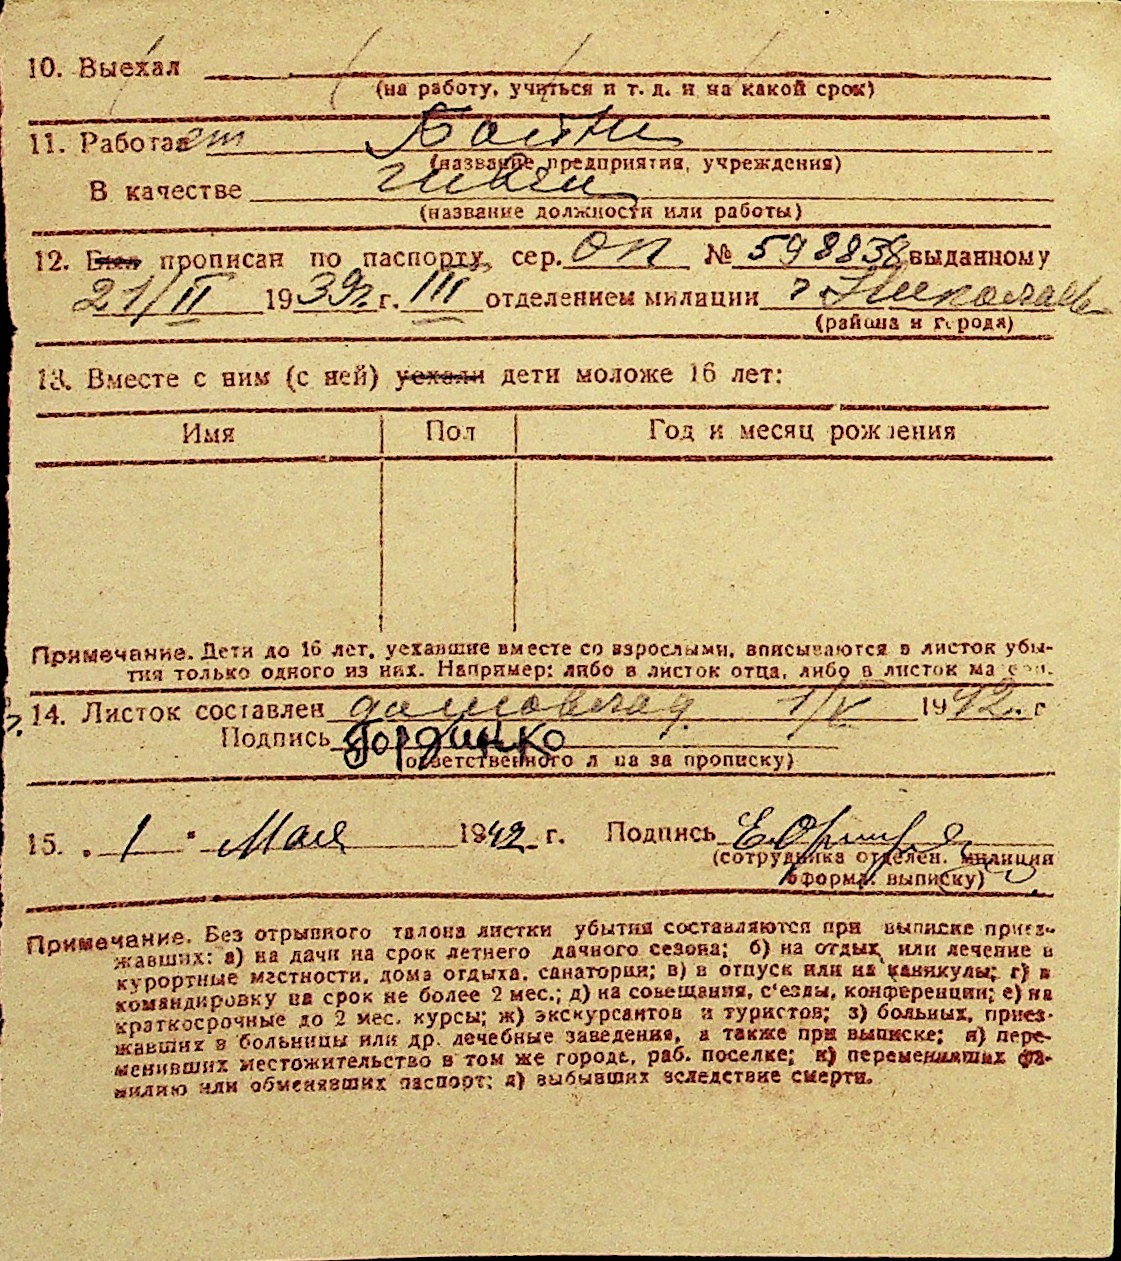 10. Выехал
(на работу, учиться и т. д. и на какой срок)
11. Работает
(название предприятия, учреждения)
В качестве швеи
(название должности или работы)
12. Был прописан по паспорту, сер. ОП № 598838 выданному
21/II 1939г. г. III отделением милиции г Николаев
(района и города)
13. Вместе с ним (с ней) уехали дети моложе 16 лет:
Имя Пол Год и месяц рождения
Примечание. Дети до 16 лет, уехавшие вместе со взрослыми, вписываются в листок убы-
тия только одного из них. Например: либо в листок отца, либо в листок матери.
14. Листок составлен домовлад. 1/V 1942. г
Подпись Гординко
(ответственного лица за прописку)
15. „ 1 " Мая 1942 г. Подпись
(сотрудника отделен. милиции
оформл. выписку)
Примечание. Без отрывного талона листки убытия составляются при выписке приез-
жавших: а) на дачи на срок летнего дачного сезона; б) на отдых или лечение в
курортные местности, дома отдыха, санатории; в) в отпуск или на каникулы; г) в
командировку на срок не более 2 мес.; д) на совещания, с'езды, конференции; е) на
краткосрочные до 2 мес. курсы; ж) экскурсантов и туристов; з) больных, приез-
жавших в больницы или др. лечебные заведения, а также при выписке; и) пере-
менивших местожительство в том же городе, раб. поселке; к) переменивших фа-
милию или обменявших паспорт; л) выбывших вследствие смерти.